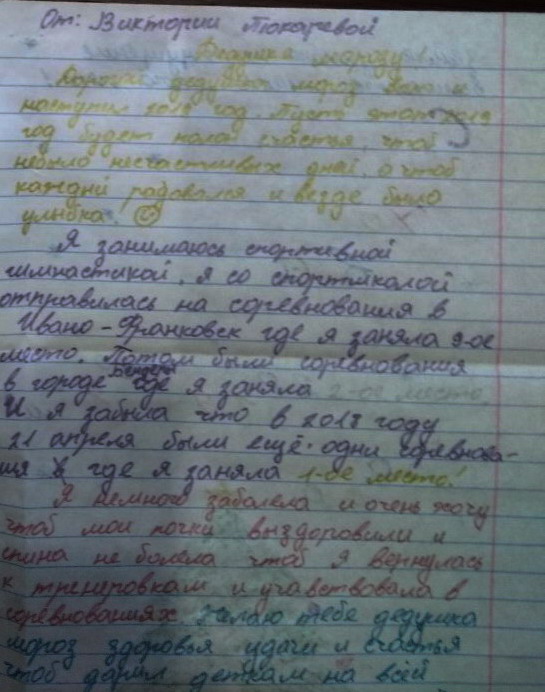 От: Виктории Токаревой
Дедушка морозу!
Дорогой дедушка мороз вот и
наступил 2019 год. Пусть этот 2019
год будет полон счастья, чтоб
небыло несчастливых дней, а чтоб
каждый радовался и везде была
улыбка
Я занимаюсь спортивной
гимнастикой, я со спортшколой
отправилась на соревнования в
Ивано-Франковск где я заняла 9-ое
место. Потом были соревнования
в городе Бендеры где я заняла 2-ое место.
И я забыла что в 2018 году
21 апреля были ещё одни соревнова-
ния где я заняла 1-ое место!
Я немного заболела и очень хочу
чтоб мои почки выздоровили и
спина не болела чтоб я вернулась
к тренеровкам и учавствовала в
соревнованиях. Желаю тебе дедушка
мороз здоровья удачи и счастья
чтоб дарил деткам на всей